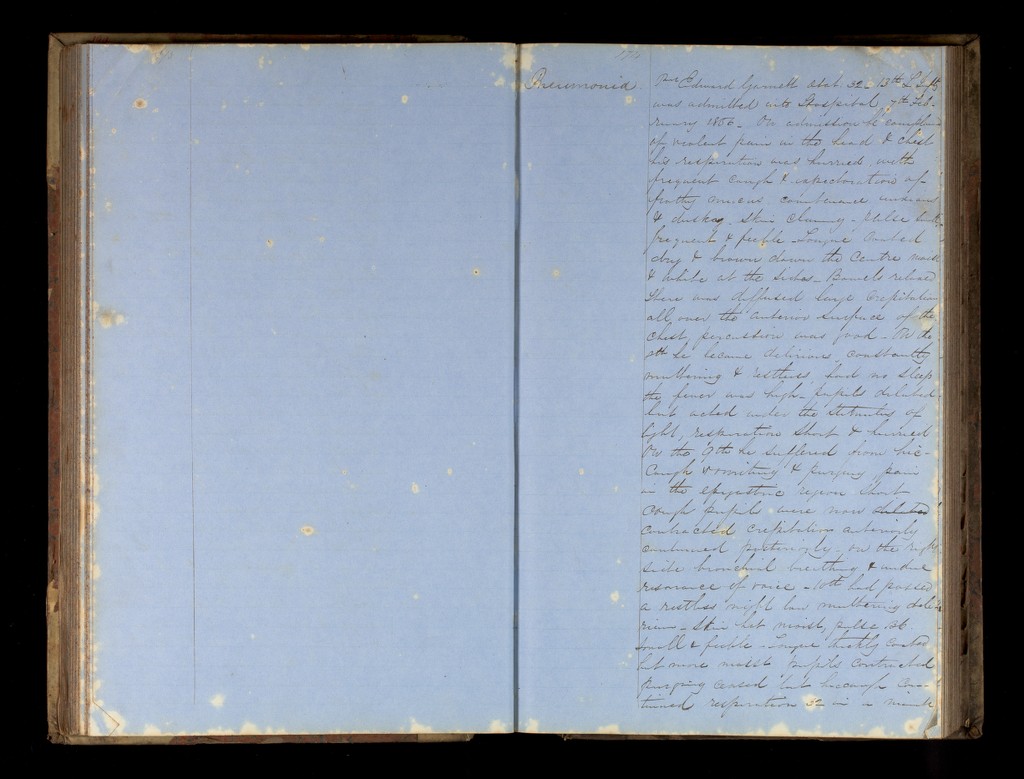 Pneumonia
Pte Edward Garnett aetat. 32 13th L. Inft
was admitted into Hospital 7th Feb-
ruary 1856 - On admission he complained
of violent pain in the head & chest
his respiration was hurried with
frequent cough & expectoration of
frothy mucus, countenance anxious
& dusky, Skin Clammy - Pulse
frequent & feeble - Tongue Coated
dry & brown down the Centre moist
& white at the sides - Bowels relaxed
There was diffused large Crepitation
all over the anterior surface of the
Chest, percussion was good - On the
8th he became delirious, constantly
muttering & restless, had no sleep
the fever was high - pupils dilated
but acted under the stimulus of
light, respiration short & hurried
On the 9th he suffered from hic-
Cough vomiting & purging pain
in the epigastric region short
Cough pupils were now dilated
contracted crepitation anteriorly
continued posteriorly - on the right
side bronchial breathing & undue
resonance of voice - 10th had passed
a restless night low muttering deli-
rium - Skin hot moist, pulse
small & feeble - Tongue thickly coated
but more moist pupils contracted
purging ceased but hiccough Con-
tinued respiration 32 in a minute